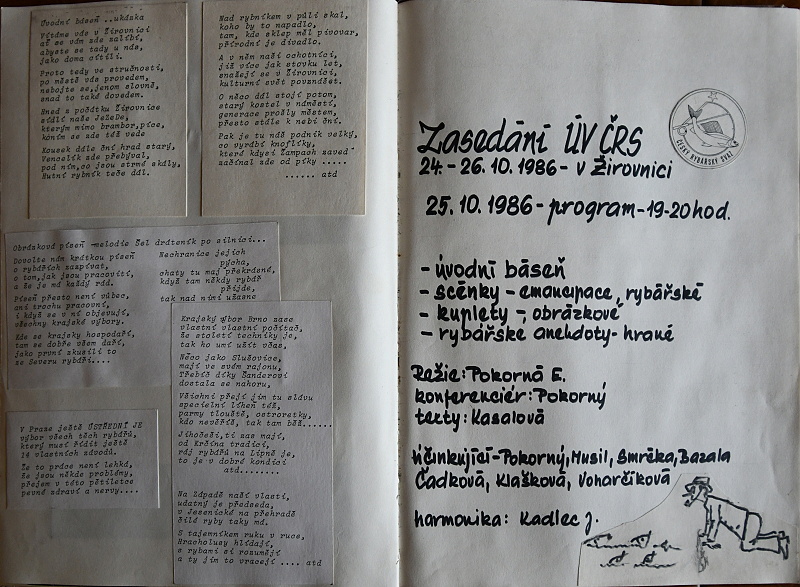 Úvodní báseň ..ukázka
Vítáme vás v Žirovnici
ať se vám zde zalíbí,
abyste se tady u nás,
jako doma cítili.
Proto tedy ve stručnosti,
po městě vás provedem,
nebojte se,jenom slovně,
snad to také dovedem.
Hned z počátku Žirovnice
sídlí naše JeZeDe,
kterým mimo brambor,píce,
koním se zde též vede
Kousek dále ční hrad starý,
Vencelík zde přebýval,
pod ním,co jsou strmé skály,
Hutní rybník teče dál.
Nad rybníkem v půli skal,
koho by to napadlo,
tam, kde sklep měl pivovar,
přírodní je divadlo.
A v něm naši ochotníci,
již více jak stovku let,
snažejí se v Žirovnici,
kulturní svět povznášet.
O něco dál stojí potom,
starý kostel v náměstí,
generace prošly městem,
přesto stále k nebi ční.
Pak je tu náš podnik velký,
co vyrábí knoflíky,
které kdysi Žampach zaved
začínal zde od píky .....
...... atd
Obrázková píseň -melodie Šel dráteník po silnici...
Dovolte nám krátkou píseň
o rybářích zaspívat,
o tom,jak jsou pracovití,
a že je má každý rád.
Píseň přesto není vůbec,
ani trochu pracovní,
i když se v ní objevují,
všechny krajské výbory.
Kde se krajsky hospodaří,
tam se dobře všem daří,
jako první zkusili to
ze Severu rybáři....
Nechranice jejich
pýcha,
chaty tu maj překrásné,
když tam někdy rybář
přijde,
tak nad nimi užasne
Krajský výbor Brno zase
vlastní vlastní počítač,
že století techniky je,
tak ho umí užít včas,
Něco jako Slušovice,
mají ve svém rajonu,
Třebíč díky Šanderovi
dostala se nahoru,
Všichni přejí jim tu slávu
specielní líheň též,
parmy tlouště, ostroretky,
kdo nevěříš, tak tam běž......
Jihočeši,ti zas mají,
od Krčína tradici,
ráj rybářů na Lipně je,
to je v dobré kondici
atd........
Na Západě naší vlasti,
udatný je předseda,
v Jesenické na přehradě
čilé ryby taky má.
S tajemníkem ruku v ruce,
Hracholusy hlídají,
s rybami si rozumějí
a ty jim to vracejí .... atd
V Praze ještě ÚSTŘEDNÍ JE
výbor všech těch rybářů,
který musí řídit ještě
14 vlastních závodů.
Že to práce není lehká,
že jsou někde problémy,
přejem v této pětiletce
pevné zdraví a nervy....
Zasedání ÚV ČRS
24.-26.10.1986- v Žirovnici
ČESKÝ RYBÁŘSKÝ SVAZ
25.10.1986-program-19-20hod.
- úvodní báseň
- scénky - emancipace, rybářské
- kuplety - obrázkové
- rybářské anekdoty- hrané
Režie: Pokorná E.
konferenciér: Pokorný
texty: Kasalová
účinkující-Pokorný, Musil, Smrčka, Bazala
Čadková, Klašková, Voharčíková
harmonika: Kadlec J.